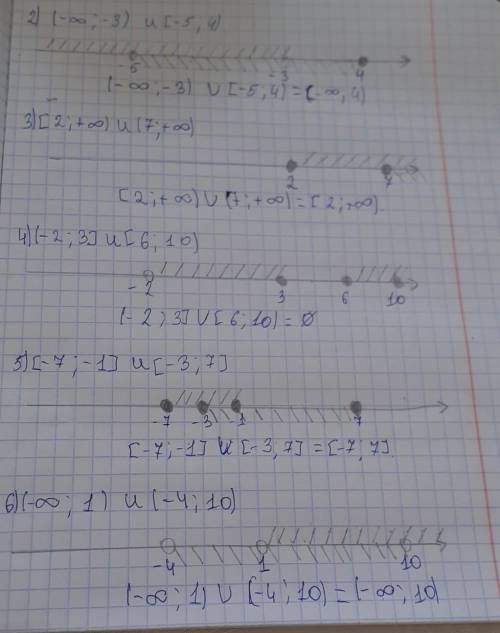 2) (-∞; -3) и [-5, 4)
-5 -3 4
(-∞; -3) ∪ [-5, 4) = (-∞, 4)
3) [2; +∞) и (7; +∞)
2 7
[2; +∞) ∪ (7; +∞) = [2; +∞).
4) (-2; 3] и [6; 10)
-2 3 6 10
(-2; 3] ∪ [6; 10) = ∅
5) [-7; -1] и [-3; 7]
-7 -3 -1 7
[-7; -1] и [-3, 7] = [-7; 7].
6) (-∞; 1) и (-4; 10)
-4 1 10
(-∞; 1) ∪ (-4; 10) = (-∞; 10)